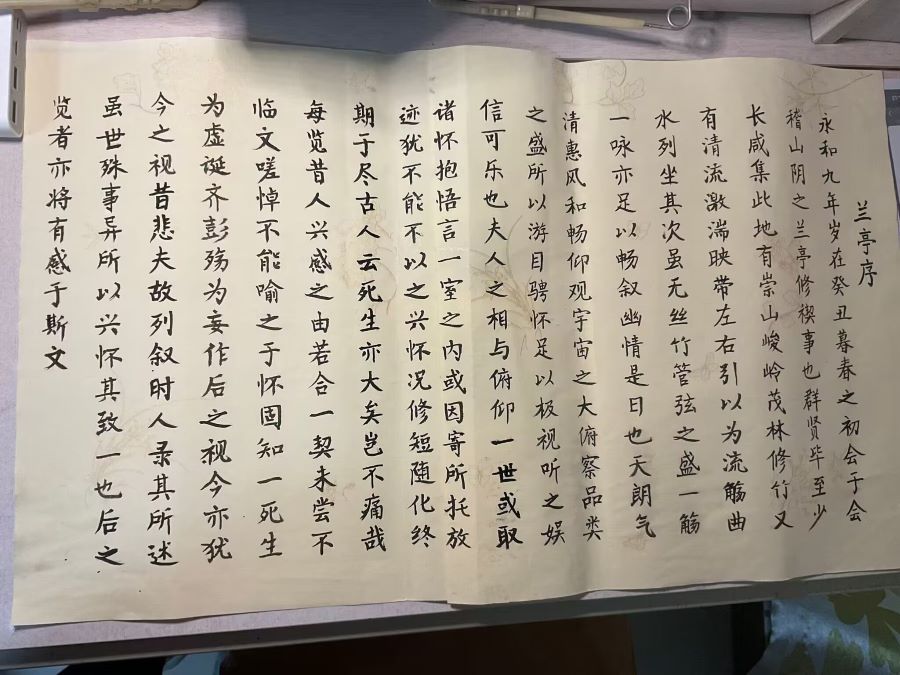 兰亭序
永和九年岁在癸丑暮春之初会于会
稽山阴之兰亭修楔事也群贤毕至少
长咸集此地有崇山峻岭茂林修竹又
有清流激湍映带左右引以为流觞曲
水列坐其次虽无丝竹管弦之盛一觞
一咏亦足以畅叙幽情是日也天朗气
清惠风和畅仰观宇宙之大俯察品类
之盛所以游目骋怀足以极视听之娱
信可乐也夫人之相与俯仰一世或取
诸怀抱悟言一室之内或因寄所托放
迹犹不能不以之兴怀况修短随化终
期于尽古人云死生亦大矣岂不痛哉
每览昔人兴感之由若合一契未尝不
临文嗟悼不能喻之于怀固知一死生
为虚诞齐彭殇为妄作后之视今亦犹
今之视昔悲夫故列叙时人录其所述
虽世殊事异所以兴怀其致一也后之
览者亦将有感于斯文